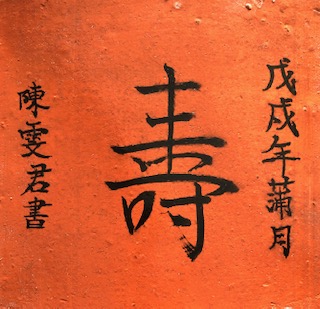 戊戌年蒲月
壽
陳雯君書